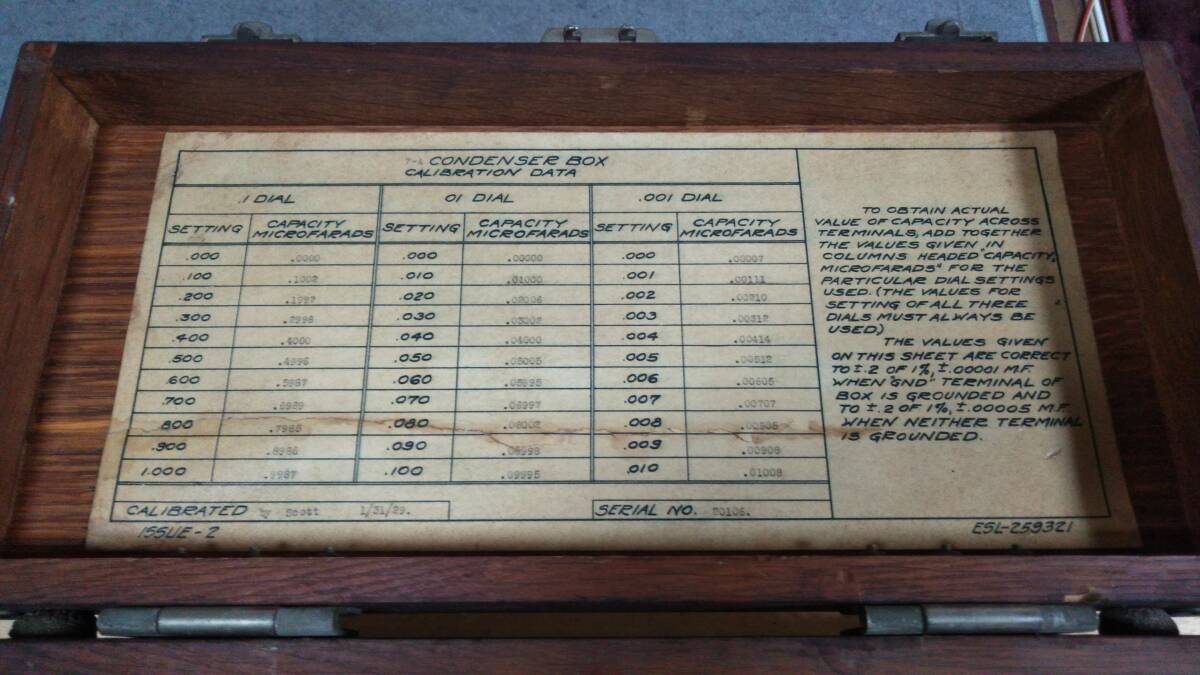 CONDENSER BOX
CALIBRATION DATA
.1 DIAL 01 DIAL .001 DIAL
SETTING CAPACITY MICROFARADS SETTING CAPACITY MICROFARADS SETTING CAPACITY MICROFARADS
.000 .0000 .000 .00000 .000 .00007
.100 .1002 .010 .01000 .001 .00111
.200 .1997 .020 .02006 .002 .00210
.300 .2998 .030 .03002 .003 .00312
.400 .4000 .040 .04000 .004 .00414
.500 .4996 .050 .05005 .005 .00512
.600 .5987 .060 .05995 .006 .00605
.700 .6989 .070 .06997 .007 .00707
.800 .7985 .080 .008
.900 .8986 .090 .08998 .009 .00908
1.000 .9987 .100 .09995 .010 .01008
CALIBRATED by Scott 1/31/29. SERIAL NO. 20106.
ISSUE-2 ESL-259321
TO OBTAIN ACTUAL
VALUE OF CAPACITY ACROSS
TERMINALS, ADD TOGETHER
THE VALUES GIVEN IN
COLUMNS HEADED "CAPACITY,
MICROFARADS" FOR THE
PARTICULAR DIAL SETTINGS
USED. (THE VALUES FOR
SETTING OF ALL THREE
DIALS MUST ALWAYS BE
USED.)
THE VALUES GIVEN
ON THIS SHEET ARE CORRECT
TO ±.2 OF 1%, ±.00001 M.F.
WHEN "GND" TERMINAL OF
BOX IS GROUNDED AND
TO ±.2 OF 1%, ±.00005 M.F.
WHEN NEITHER TERMINAL
IS GROUNDED.